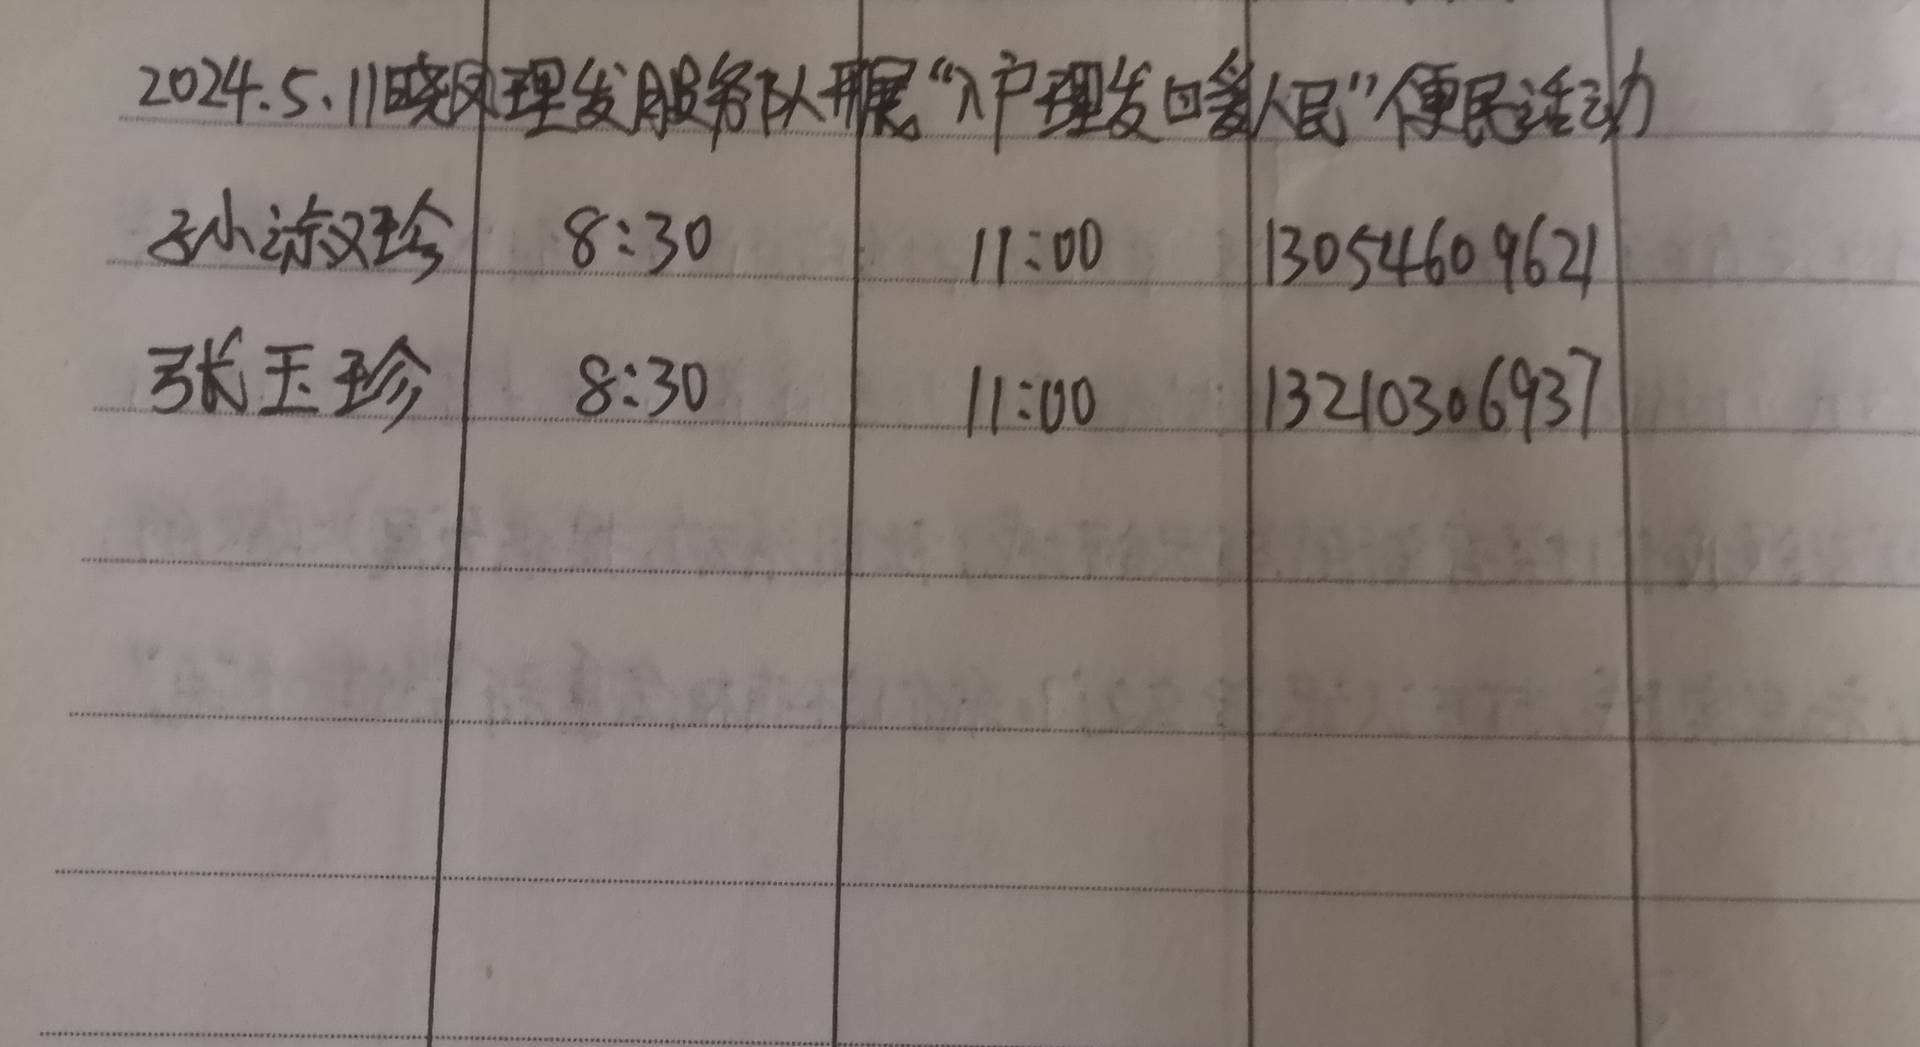 2024.5.11晓风理发服务队开展“入户理发口暖人民”便民活动
孙淑珍 8:30 11:00 13054609621
张玉珍 8:30 11:00 13210306937